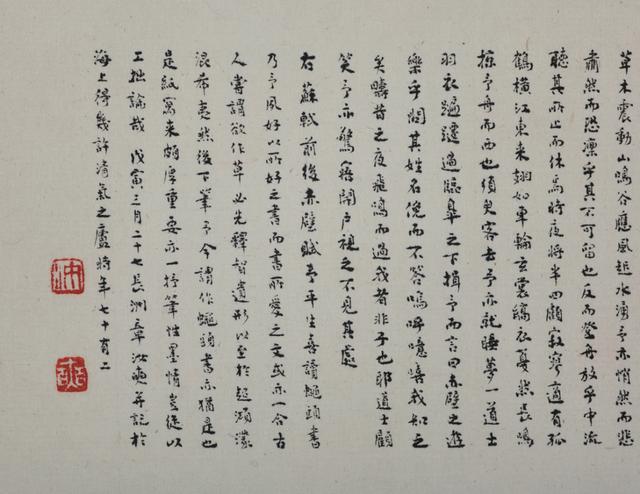 草木震動山鳴谷應風起水湧予亦悄然而悲
肅然而恐凜乎其不可留也反而登舟放乎中流
聽其所止而休焉時夜將半四顧寂寥適有孤
鶴橫江東來翅如車輪玄裳縞衣戛然長鳴
掠予舟而西也須臾客去予亦就睡夢一道士
羽衣蹁躚過臨皋之下揖予而言曰赤壁之遊
樂乎問其姓名俛而不答嗚呼噫嘻我知之
矣疇昔之夜飛鳴而過我者非子也耶道士顧
笑予亦驚寤開戶視之不見其處
右蘇軾前後赤壁賦予平生喜讀蠅頭書
乃予夙好以所好之書而書所愛之文或亦一合古
人書謂欲作草必先釋智遺形以至於超鴻濛
混希夷然後下筆予今謂作蠅頭書亦猶是也
是紙寫來頗厚重要亦一抒筆性墨情豈從以
工拙論哉戊寅三月二十七長洲章汝奭並記於
海上得幾許清氣之廬時年七十有二